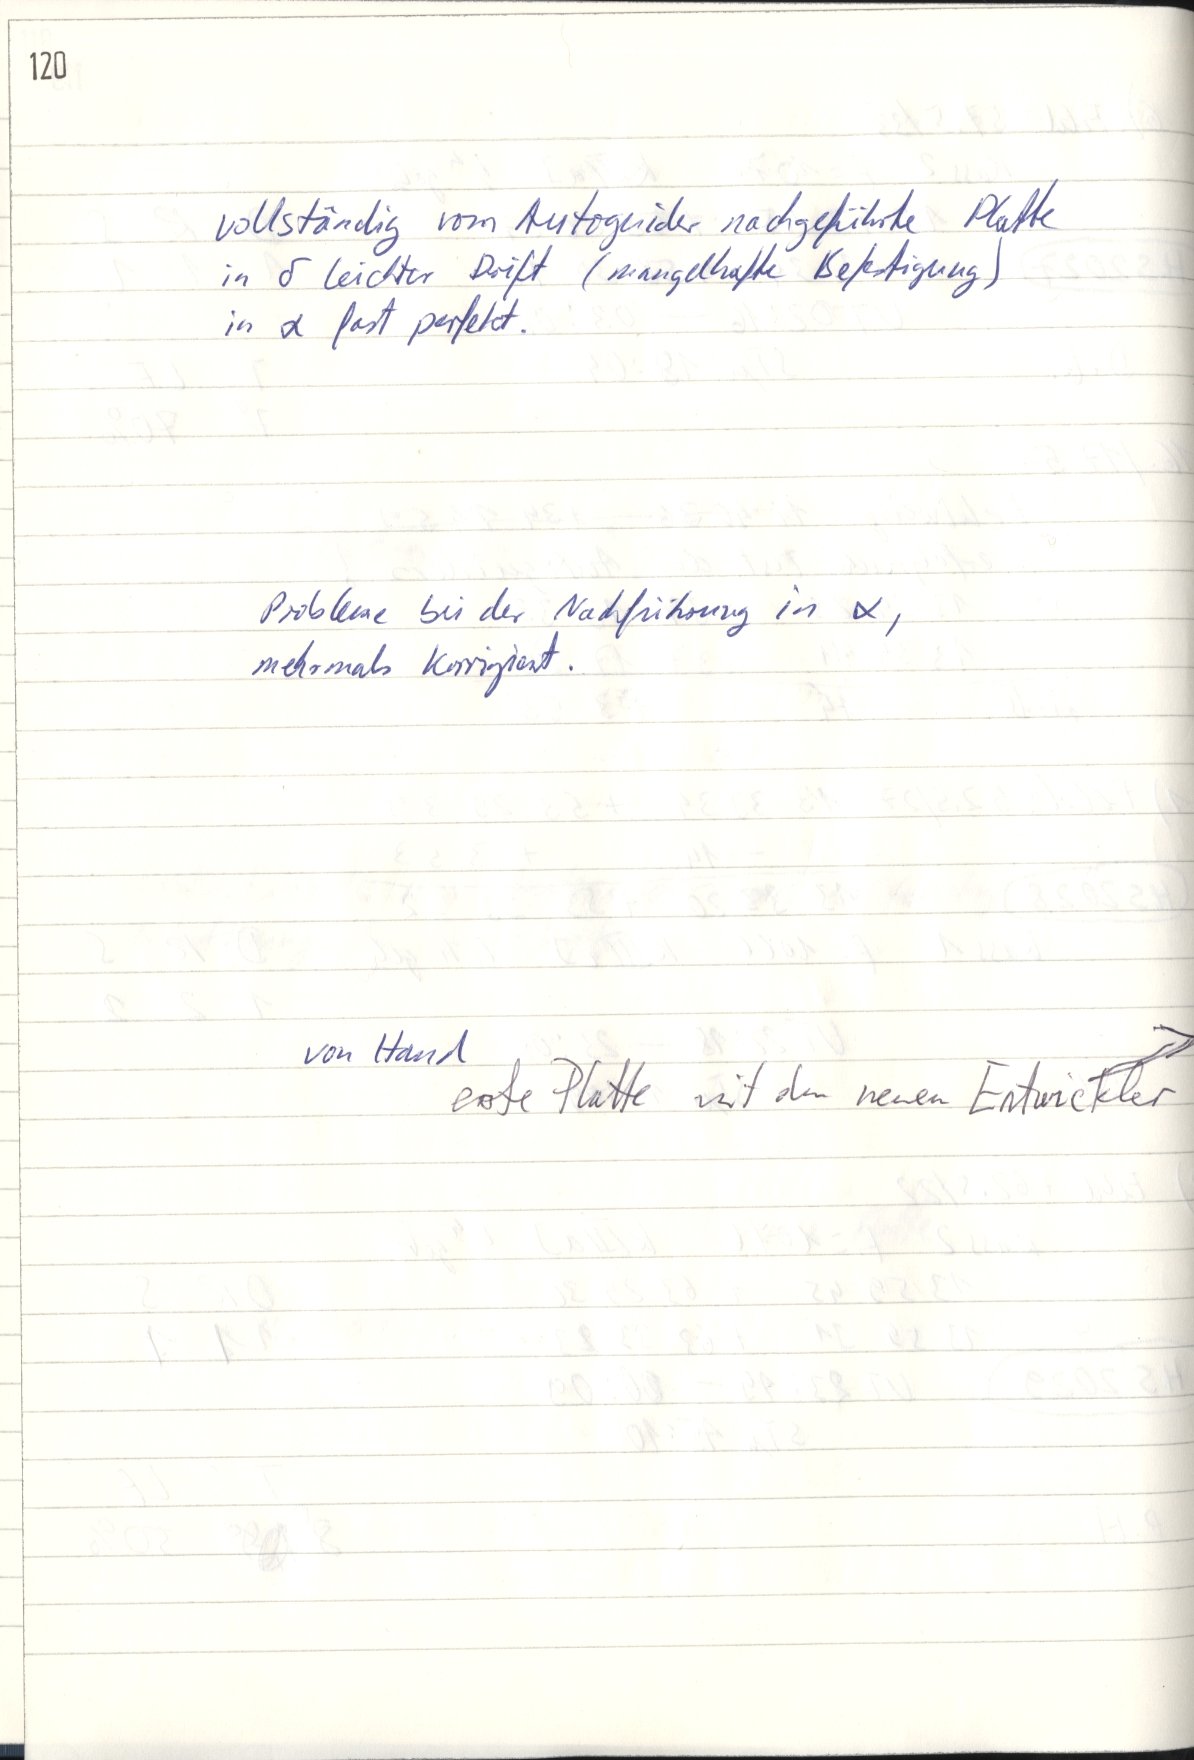 120
vollständig vom Autoguider nachgeführte Platte
in δ leichter Drift (mangelhafte Befestigung)
in α fast perfekt.
Probleme bei der Nachführung in α,
mehrmals korrigiert.
von Hand
erste Platte mit dem neuen Entwickler